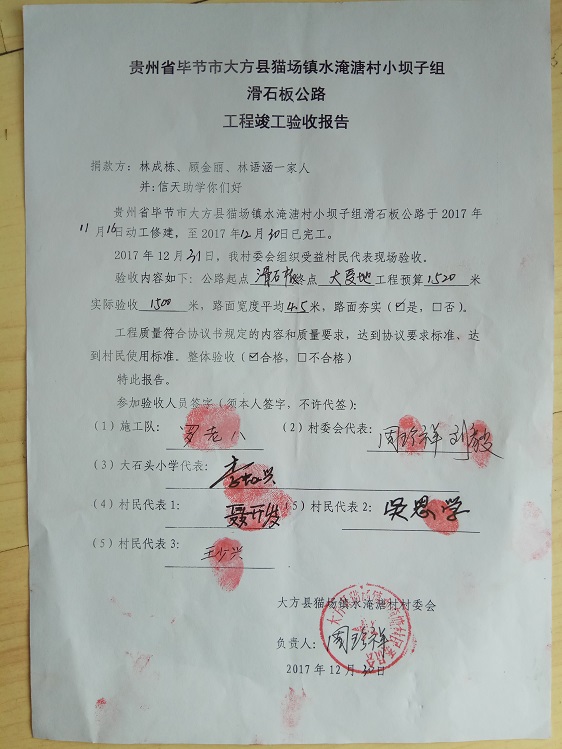 贵州省毕节市大方县猫场镇水淹溏村小坝子组
滑石板公路
工程竣工验收报告
捐款方：林成栋、顾金丽、林语涵一家人
并：信天助学你们好
贵州省毕节市大方县猫场镇水淹溏村小坝子组滑石板公路于 2017 年
11 月 16 日动工修建，至 2017 年 12 月 30 日已完工。
2017 年 12 月 31 日，我村委会组织受益村民代表现场验收。
验收内容如下：公路起点 滑石板 终点 大麦地 工程预算 1520 米
实际验收 1500 米，路面宽度平均 4.5 米，路面夯实（☑是，□否）。
工程质量符合协议书规定的内容和质量要求，达到协议要求标准、达
到村民使用标准。整体验收（☑合格，□不合格）
特此报告。
参加验收人员签字（须本人签字，不许代签）：
（1）施工队： 罗老八 （2）村委会代表： 周珍祥 刘毅
（3）大石头小学代表：
（4）村民代表 1： 聂开发 （5）村民代表 2： 吴恩学
（5）村民代表 3： 王少兴
大方县猫场镇水淹溏村村委会
负责人： 周珍祥
2017 年 12 月 日